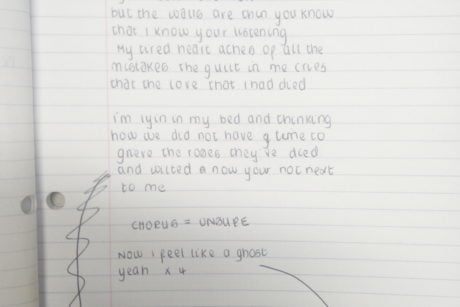 but the walls are thin you know
that I know your listening
My tired heart aches of all the
mistakes the guilt in me cries
that the love that I had died
i'm lyin in my bed and thinking
how we did not have a time to
grieve the roses they've died
and wilted a now your not next
to me
CHORUS = UNSURE
NOW i feel like a ghost
yeah x 4